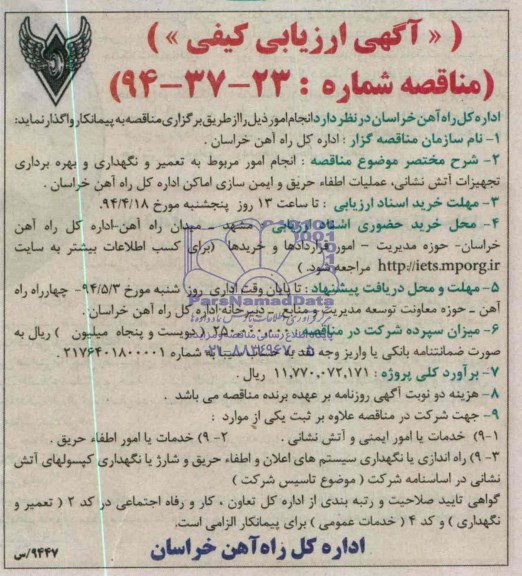 ( « آگهی ارزیابی کیفی » )
(مناقصه شماره : ۲۳-۳۷-۹۴)
اداره کل راه آهن خراسان در نظر دارد انجام امور ذیل را از طریق برگزاری مناقصه به پیمانکار واگذار نماید:
۱- نام سازمان مناقصه گزار : اداره کل راه آهن خراسان .
۲- شرح مختصر موضوع مناقصه : انجام امور مربوط به تعمیر و نگهداری و بهره برداری
تجهیزات آتش نشانی، عملیات اطفاء حریق و ایمن سازی اماکن اداره کل راه آهن خراسان .
۳- مهلت خرید اسناد ارزیابی : تا ساعت ۱۳ روز پنجشنبه مورخ ۹۴/۴/۱۸.
۴- محل خرید حضوری اسناد ارزیابی : مشهد - میدان راه آهن-اداره کل راه آهن
خراسان- حوزه مدیریت - امور قراردادها و خریدها (برای کسب اطلاعات بیشتر به سایت
http://iets.mporg.ir مراجعه شود )
۵- مهلت و محل دریافت پیشنهاد : تا پایان وقت اداری روز شنبه مورخ ۹۴/۵/۳- چهارراه راه
آهن - حوزه معاونت توسعه مدیریت و منابع - دبیرخانه اداره کل راه آهن خراسان.
۶- میزان سپرده شرکت در مناقصه : ۲۵۰،۰۰۰،۰۰۰ ( دویست و پنجاه میلیون ) ریال به
صورت ضمانتنامه بانکی یا واریز وجه نقد به حساب سیبا به شماره ۲۱۷۶۴۰۱۸۰۰۰۰۱ .
۷- برآورد کلی پروژه : ۱۱,۷۷۰,۰۷۲,۱۷۱ ریال .
۸- هزینه دو نوبت آگهی روزنامه بر عهده برنده مناقصه می باشد .
۹- جهت شرکت در مناقصه علاوه بر ثبت یکی از موارد :
۹-۱) خدمات یا امور ایمنی و آتش نشانی . ۹-۲) خدمات یا امور اطفاء حریق .
۹-۳) راه اندازی یا نگهداری سیستم های اعلان و اطفاء حریق و شارژ یا نگهداری کپسولهای آتش
نشانی در اساسنامه شرکت ( موضوع تاسیس شرکت )
گواهی تایید صلاحیت و رتبه بندی از اداره کل تعاون ، کار و رفاه اجتماعی در کد ۲ ( تعمیر و
نگهداری ) و کد ۴ ( خدمات عمومی ) برای پیمانکار الزامی است.
اداره کل راه آهن خراسان
۹۴۴۷/س
ParsNamadData
۰۲۱-۸۸۳۴۹۶۷۰-۵